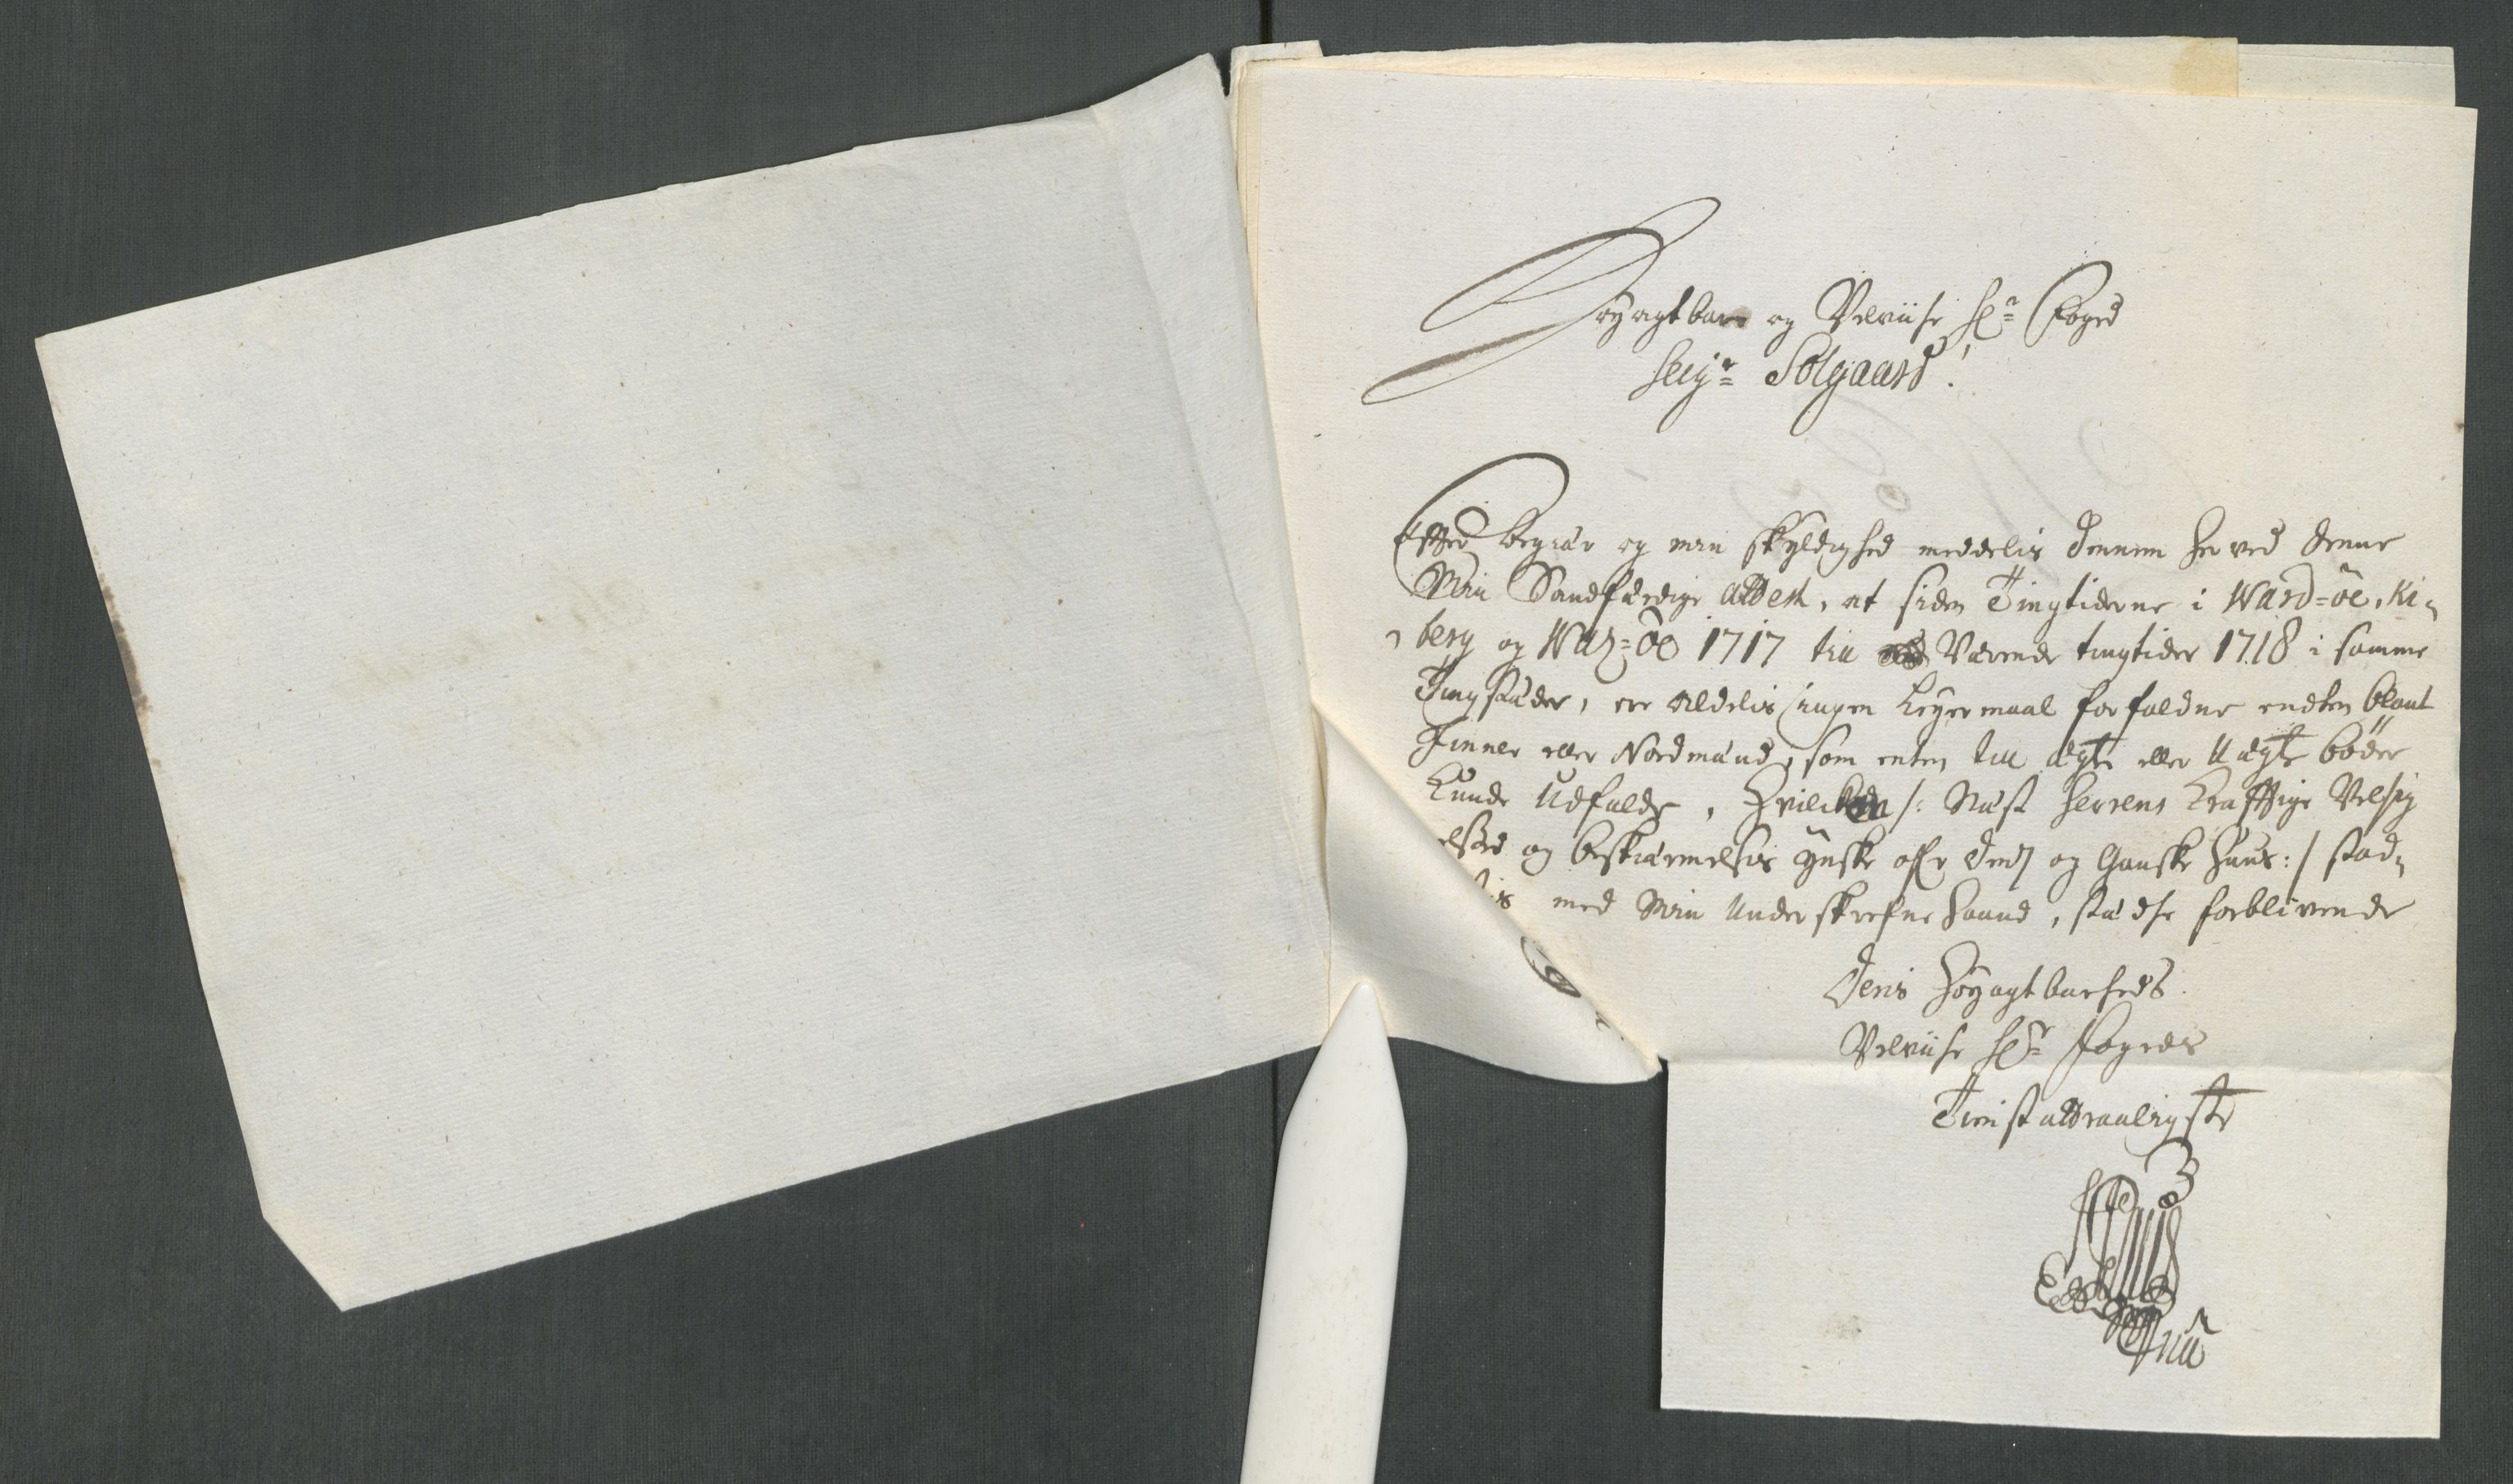 Høyagtbare og Velviise Hr Foged
Seigr Solgaard!
Effter begiær og min skyldighed meddelis Dennem her ved denne
Min Sandfærdige Attest, at siden Tingtiderne i Ward-öe, Ki-
berg og Wadz-öe 1717 till Værende tingtider 1718 i samme
Tingstæder, ere aldelis ingen Leyermaal forfaldne endten blant
Finner eller Nordmænd, som enten till ægte eller Uægte bøder
kunde Udfalde, Hvilcket /: Næst Herrens Krafftige Velsig
elsis og beskiermelsis ynske ofr Dem og Ganske Huus :/ stad-
is med Min Underskrefne Haand, stædse forblivende
Deris Høyagtbarheds
Velviise Hr Fogeds
Tienstattraaligste